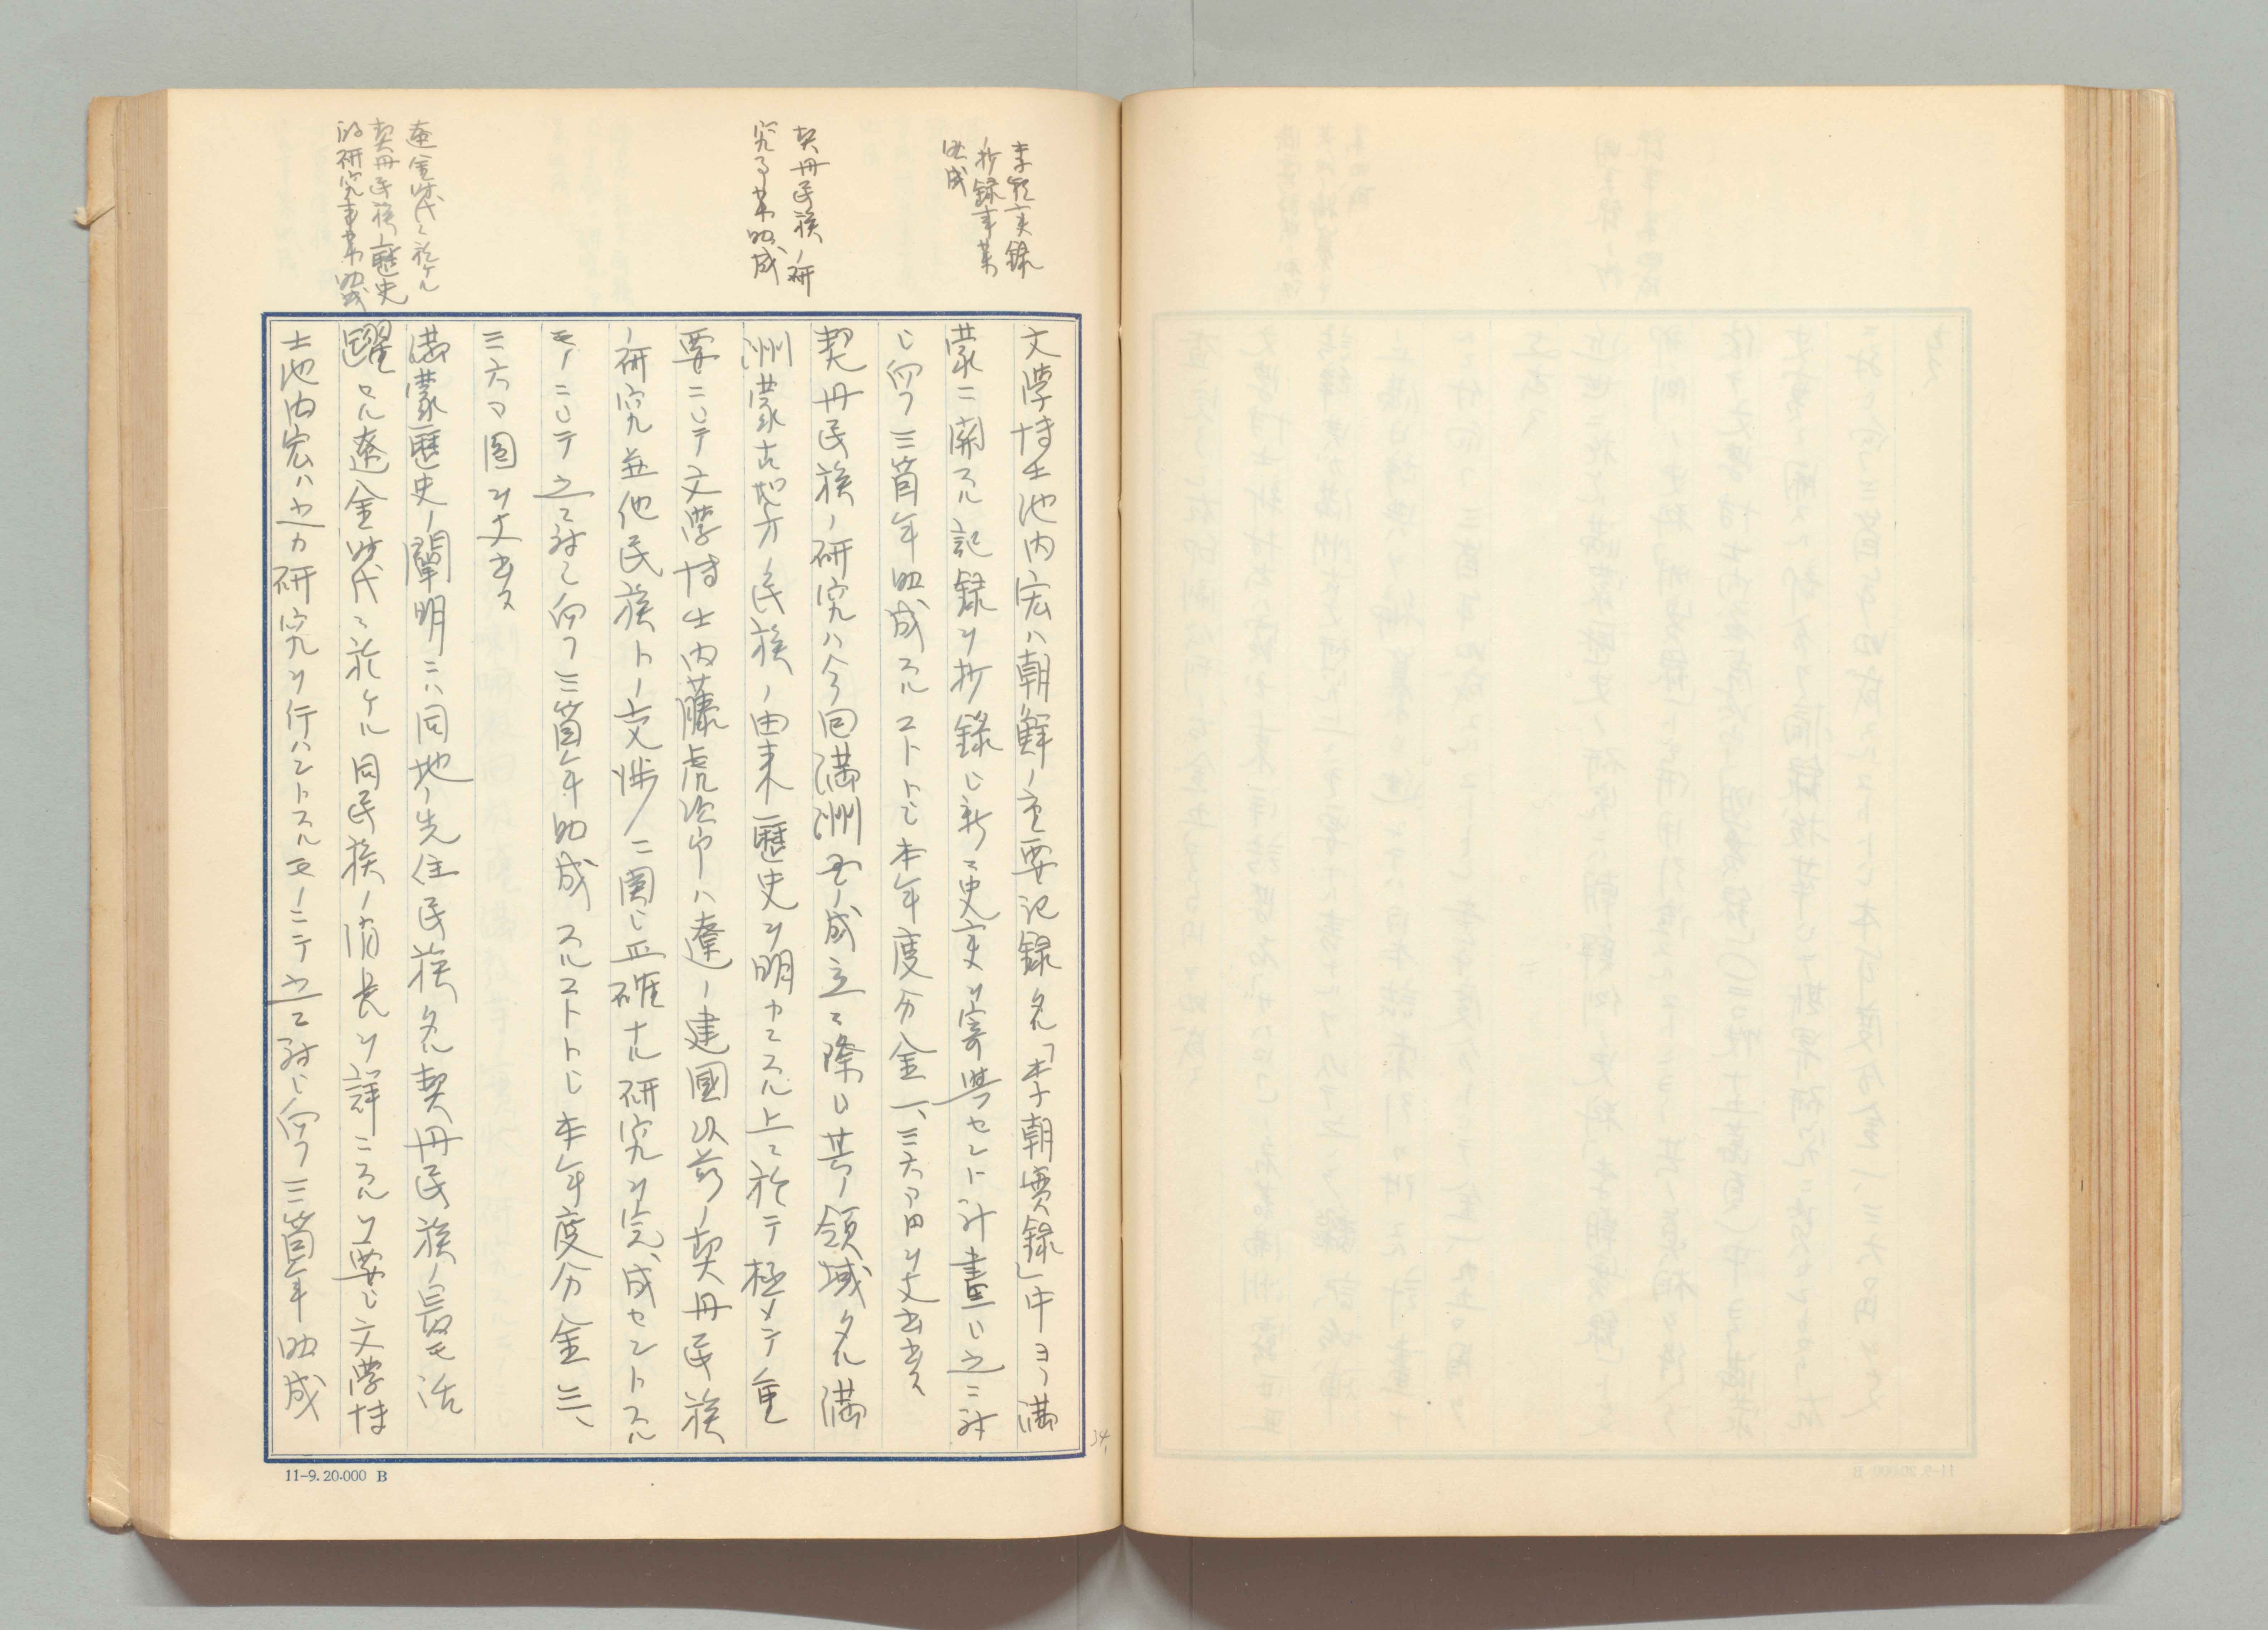 李朝実録
抄録事業
助成
契丹民族ノ研
究事業助成
遼金時代ニ於ケル
契丹民族ノ歴史
的研究事業助成
文学博士池内宏ハ朝鮮ノ主要記録タル「李朝實録」中ヨリ満
蒙ニ関スル記録ヲ抄録シ新ニ史実ヲ寄與セント計畫シ之ニ対
シ向フ三箇年助成スルコトトシ本年度分金一、三六〇円ヲ支出ス
契丹民族ノ研究ハ今回満洲国ノ成立ニ際シ其ノ領域タル満
洲蒙古地方ノ民族ノ由来歴史ヲ明カニスル上ニ於テ極メテ重
要ニシテ文学博士内藤虎次郎ハ遼ノ建國以前ノ契丹民族
ノ研究並他民族トノ交渉ニ関シ正確ナル研究ヲ完成セントスル
モノニシテ之ニ対シ向フ三箇年助成スルコトトシ本年度分金三、
三六〇圓ヲ支出ス
満蒙歴史ノ闡明ニハ同地ノ先住民族タル契丹民族ノ最モ活
躍セル遼金時代ニ於ケル同民族ノ消長ヲ詳ニスルヲ要シ文学博
士池内宏ハ之カ研究ヲ行ハントスルモノニテ之ニ対シ向フ三箇年助成
34
11-9.20.000 B